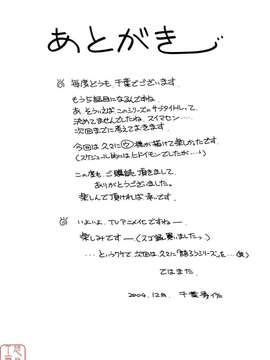 あとがき
毎度どうも、千葉でございます。
もう5冊目になるんですね。
あ、そういえばこのシリーズのサブタイトルって、
決めてませんでしたね。スイマセン……
次回までに考えておきます。
今回は久々に 機が描けて楽しかったです。
(スケジュール的にはヒドイモンでしたが……!)
この度も、ご購読頂きまして、
ありがとうございました。
楽しんで頂ければ幸いです。
いよいよ、TVアニメ化ですねー
楽しみですー(スゴ録買いましたっ)
……というワケで、次回は、久々に「語ろうシリーズ」を……(爆)
ではまた
2004.12月. 千葉秀作